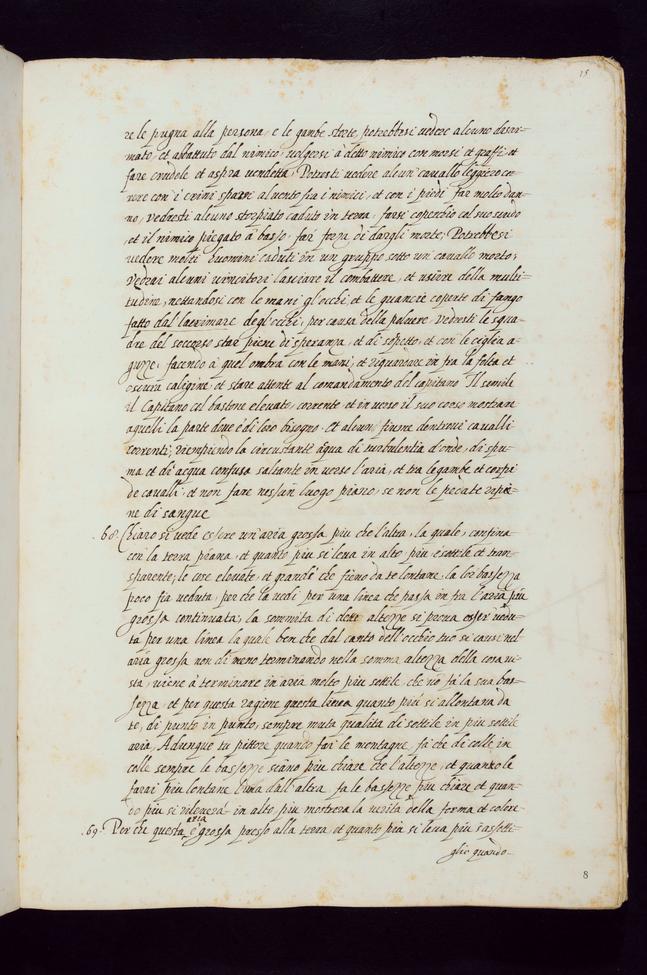 15
re le pugna alla persona, e le gambe storte, potrebbesi vedere alcuno desar-
mato, et abbattuto dal nimico, volgersi à detto nimico con morsi et graffi, et
fare crudele et aspra vendetta; Potresti vedere alcun cavallo leggiero cor-
rere con i crini sparsi al vento fra i nimici, et con i piedi far molto dan-
no, vedresti alcuno storpiato caduto in terra, farsi coperchio col suo scudo
, et il nimico piegato à basso, far forza di dargli morte; Potrebbesi
vedere molti huomini caduti in un gruppo sotto un cavallo morto;
Vedrai alcuni vincitori lasciare il combattere, et uscire della multi-
tudine, nettandosi con le mani gl'occhi, et le guancie coperte di fango
fatto dal lacrimare degl'occhi, per causa della polvere, vedresti le squa-
dre del soccorso star piene di speranza, et di sospetto, et con le ciglia a-
guzze, facendo à quel ombra con le mani, et riguardare in fra la folta et
oscura caligine, et stare attente al comandamento del capitano. Il simile
il Capitano col bastone elevato, corrente, et in verso il suo corso mostrare
aquelli la parte dove è di loro bisogno. Et alcun fiume dentrovi cavalli
correnti, riempiendo la circustante aqua di turbulentia d'onde, di spu-
ma et di acqua confusa saltante in verso l'aria, et tra le gambe et corpi
de cavalli, et non fare nessun luogo piano, se non le pedate ripie-
ne di sangue
.68. Chiaro si vede essere un'aria grossa piu che l'altra, la quale, confina
con la terra piana, et quanto piu si leva in alto piu è sottile et tran-
sparente; le cose elevate, et grandi che fieno da te lontane, la lor bassezza
poco fia veduta, perche la vedi per una linea che passa in fra l'aria piu
grossa continuata; la sommita di dette altezze si prova esser vedu-
ta per una linea la quale ben che dal canto dell'occhio tuo si causi nel
aria grossa non di meno terminando nella somma altezza della cosa vi-
sta, viene à terminare in aria molto piu sottile, che nō fà la sua bas-
sezza, et per questa ragione questa linea quanto piu si allontana da
te, di punto in punto, sempre muta qualita di sottile in piu sottile
aria, Adunque tu pittore quando fai le montagne, fà che di colle in
colle sempre le bassezze siano piu chiare che l'altezze, et quanto le
farai piu lontane l'una dall'altra fa le bassezze piu chiare et quan-
do piu si rilevera in alto, piu mostrera la verita della forma et colore
aria
.69. Per che questa è grossa presso alla terra, et quanto piu si leva piu s'assotti-
glia quàndo-
8